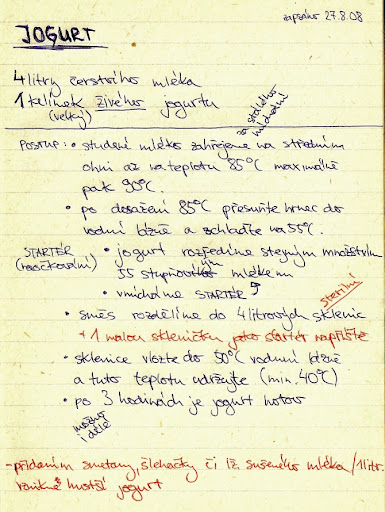 zapsáno 27.8.08
JOGURT
4 litry čerstvého mléka
1 kelímek živého jogurtu
(velký)
za stálého
míchání
POSTUP: • studené mléko zahřejeme na středním
ohni až na teplotu 85°C maximálně
pak 90°C.
• po dosažení 85°C přesuňte hrnec do
vodní lázně a zchlaďte na 55°C.
STARTÉR • jogurt rozředíme stejným množstvím
(naočkování) 55 stupňovým mlékem
• vmícháme STARTÉR
• směs rozdělíme do 4 litrových sklenic
sterilní
+ 1 malou skleničku jako startér napříště
• sklenice vložte do 50°C vodní lázně
a tuto teplotu udržujte (min. 40°C)
• po 3 hodinách je jogurt hotov
možno
i déle
- přidáním smetany, šlehačky či lž. sušeného mléka/1litr.
vznikne hustší jogurt